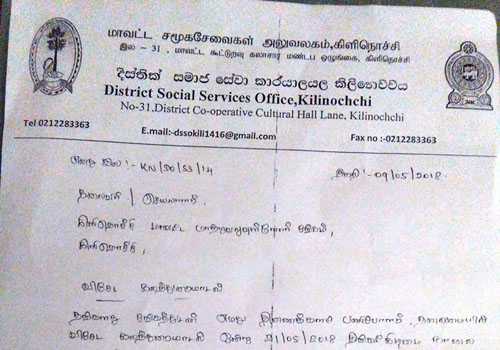 மாவட்ட சமூகசேவைகள் அலுவலகம்,கிளிநொச்சி
இல - 31, மாவட்ட கூட்டுறவு கலாசார மண்டப ஒழுங்கை, கிளிநொச்சி
දිස්ත්‍රික් සමාජ සේවා කාර්යාලය කිලිනොච්චිය
District Social Services Office,Kilinochchi
No-31,District Co-operative Cultural Hall Lane, Kilinochchi
Tel 0212283363
E.mail:-dssokili1416@gmail.com
Fax no :-0212283363
எனது இல :- KN/SO/SS/14
திகதி :-09/05/2018
தலைவர் / செயலாளர்
கிளிநொச்சி மாவட்ட
கிளிநொச்சி,
விசேட கலந்துரையாடல்
விசேட கலந்துரையாடல் 21/05/2018